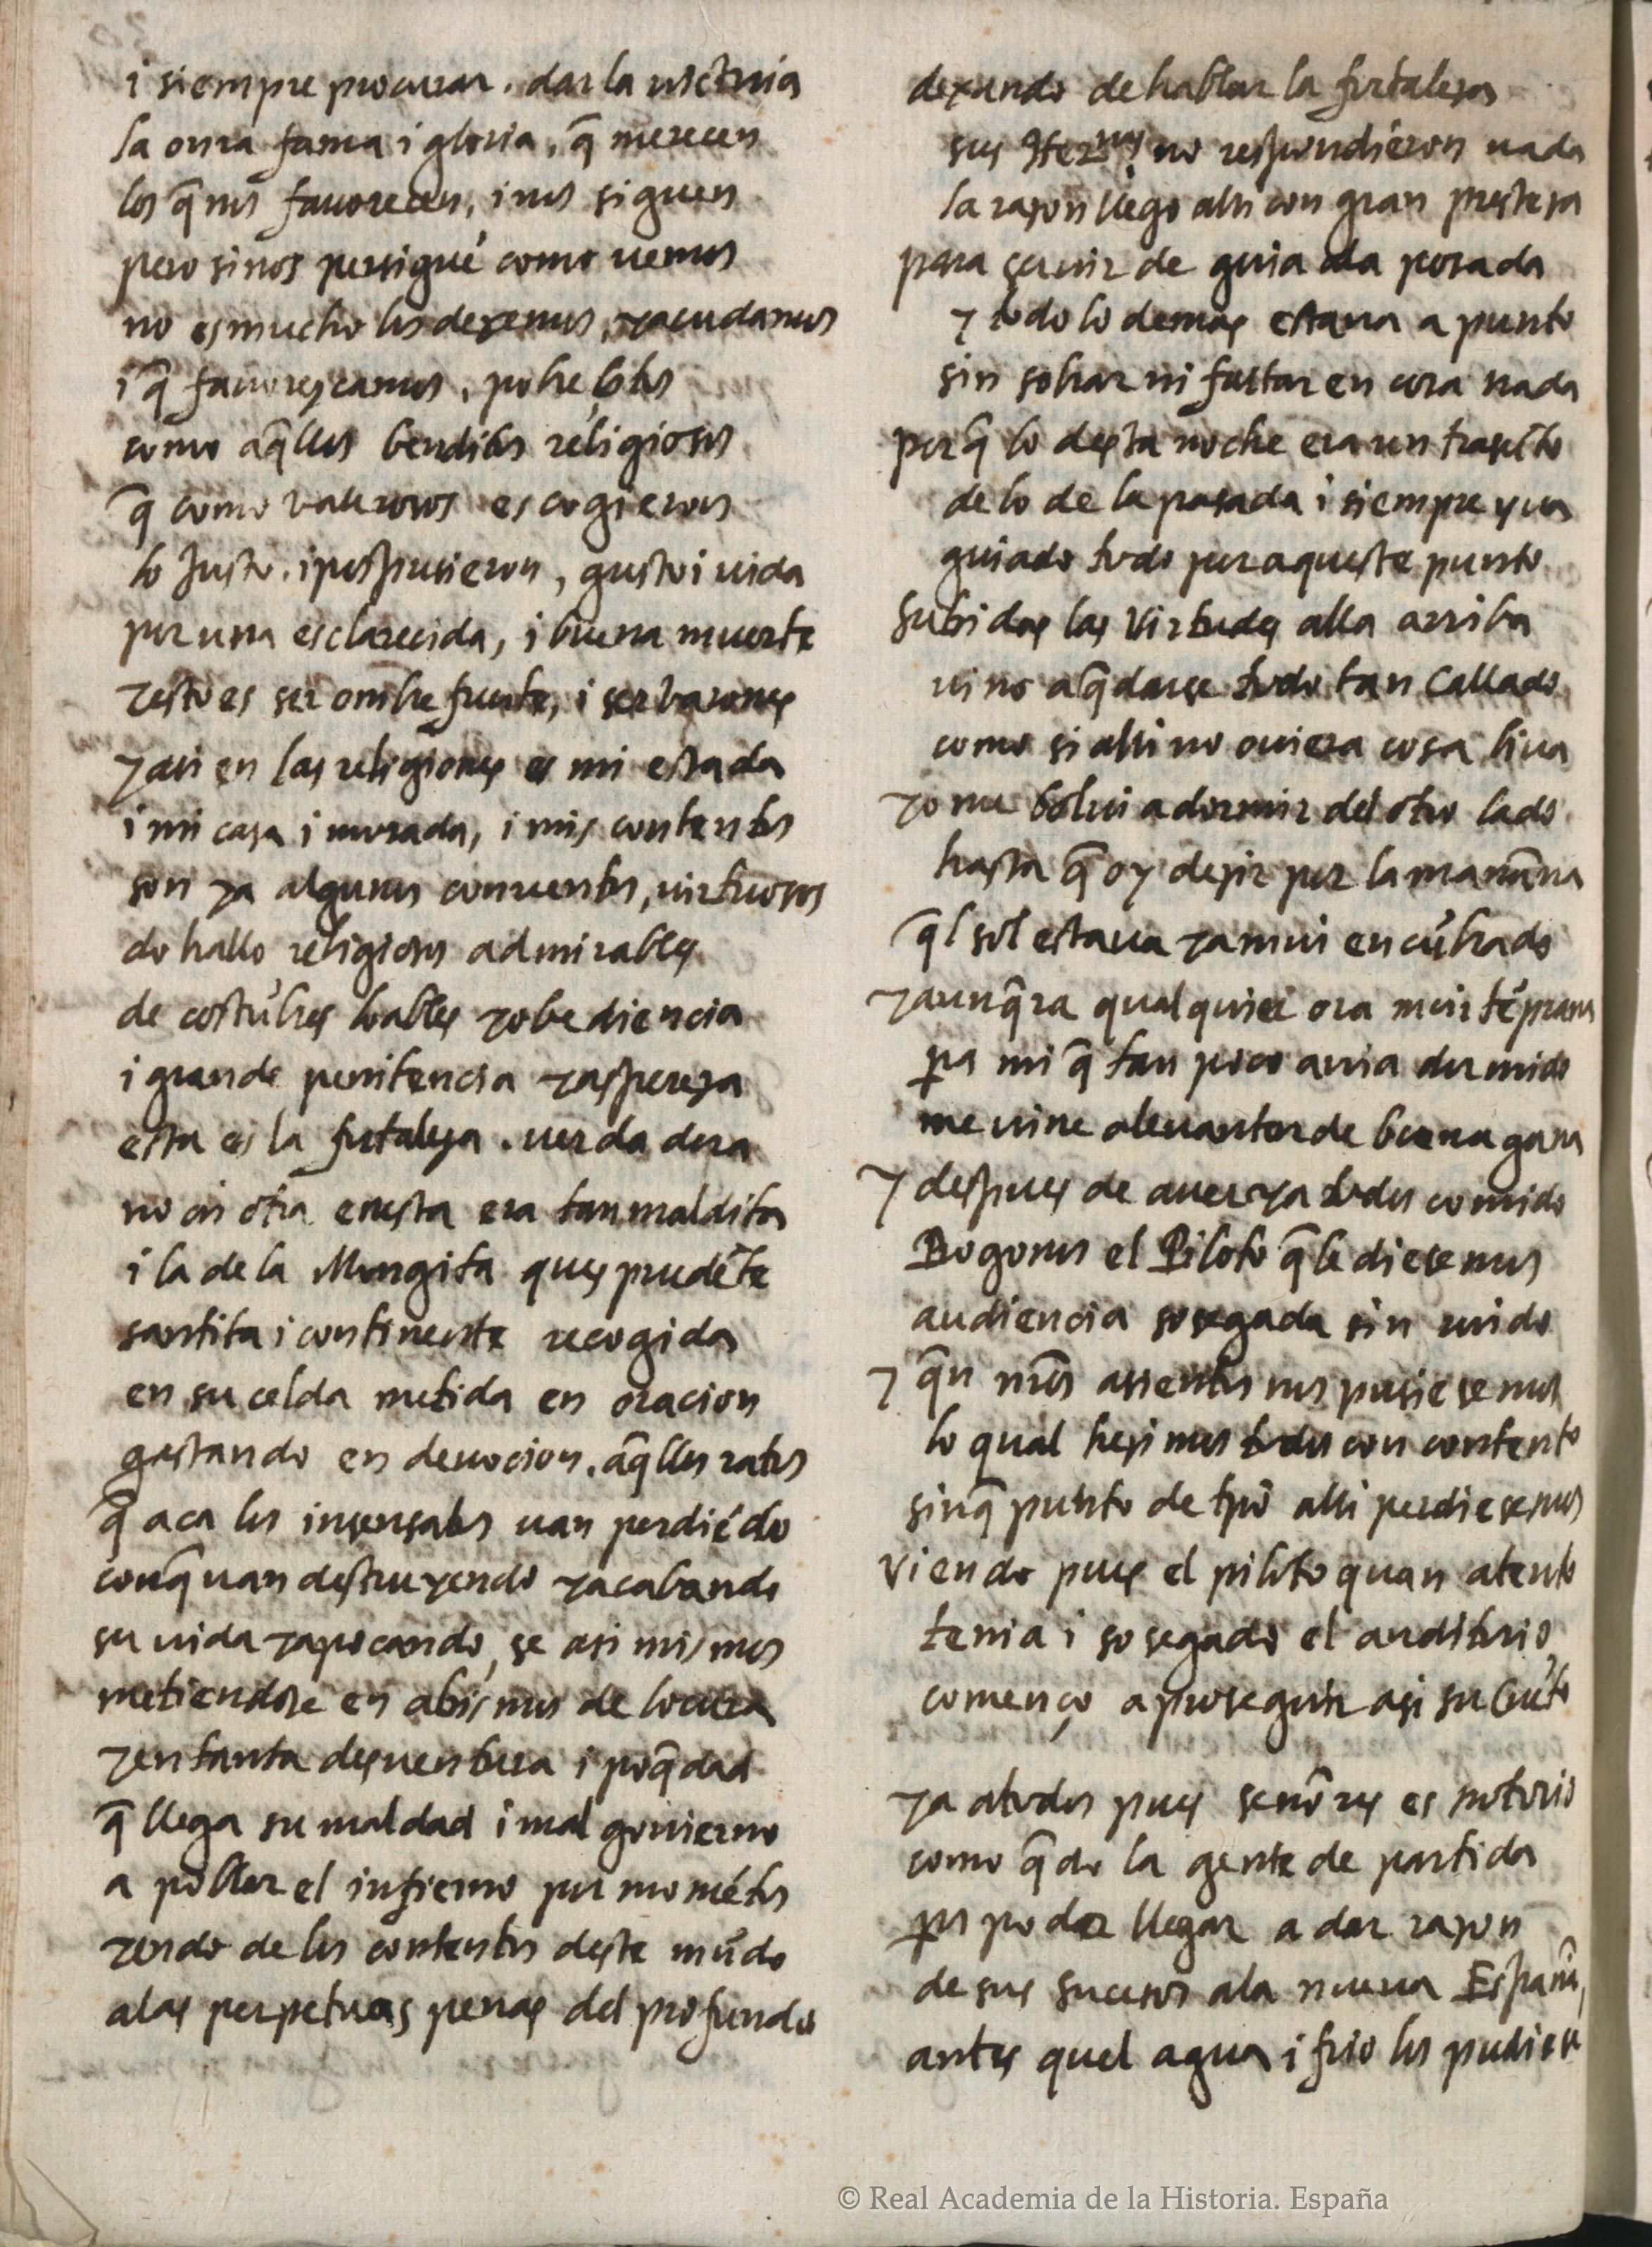 i siempre procurar. dar la uictoria
la onra fama i gloria, q̃ merecen
los q̃ nos fauorecen, i nos siguen
pero sinos persiguẽ como uemos
no es mucho los dexemos, yacudamos
i q̃ fauorescamos, pobretos
como aq̃llos benditos religiosos
q̃ como valerosos escogieron
lo Justo. i pospusieron, gusto i uida
por una esclarecida, i buena muerte
yesto es ser ombre fuerte, i ser barones
yasi en las religiones es mi estada
i mi casa i morada, i mis contentos
son ya algunos conuentos, uirtuosos
do hallo religiosos admirables
de costũbres loables yobediencia
i grande penitencia yaspereza
esta es la fortaleza. uerdadera
no cis otra enesta era tan maldita
i la de la Mongita ques prudẽte
santita i continente recogida
en su celda metida en oracion
gastando en deuocion. aq̃llos ratos
q̃ aca los insensatos uan perdiẽdo
conq̃ uan destruyendo yacabando
su uida yapocando, se asi mismos
metiendose en abismos de locura
yentanta desuentura i poq̃dad
q̃ llega su maldad i mal gouierno
a poblar el infierno por momẽtos
yendo de los contentos deste mũdo
alas perpetuas penas del profundo
dexando de hablar la fortaleza
sus Hermas no respondieron nada
la razon llego alli con gran presteza
para seruir de guia ala posada
y todo lo demas estaua a punto
sin sobrar ni faltar en cosa nada
porq̃ lo desta noche era un trasũto
de lo de la pasada i siempre yua
guiado todo por aqueste punto
subidas las virtudes alla arriba
uino aq̃darse todo tan callado
como si alli no ouiera cosa biua
yo me bolui a dormir del otro lado
hasta q̃ oy dezir por la manãna
q̃l sol estaua ya mui encũbrado
yaunq̃ra qualquier ora mui tẽprana
pa mi q̃ tan poco auia dormido
me uine aleuantar de buena gana
y despues de auer ya todos comido
Rogonos el Piloto q̃ le diesemos
audiencia sosegada sin ruido
y q̃n nr̃os assientos nos pusiesemos
lo qual hezimos todos con contento
sinq̃ punto de tp̃o alli perdiesemos
viendo pues el piloto quan atento
tenia i sosegado el auditorio
començo a proseguir asi su cuẽto
ya atodos pues senõres es notorio
como q̃do la gente de partida
pa poder llegar a dar razon
de sus sucesos ala nueua Espanã,
antes quel agua i frio los pudiese
© Real Academia de la Historia. España